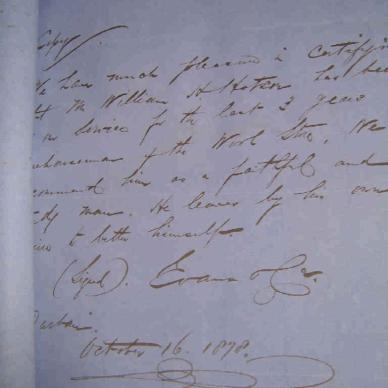 Copy
We have much pleasure in certifying
Mr William H Hotson has been
in our service for the last 3 years
warehouseman of the Wool Store. We
recommend him as a faithful and
man. He leaves by his own
to better himself.
(Signed). Evans & Co.
October 16. 1878.